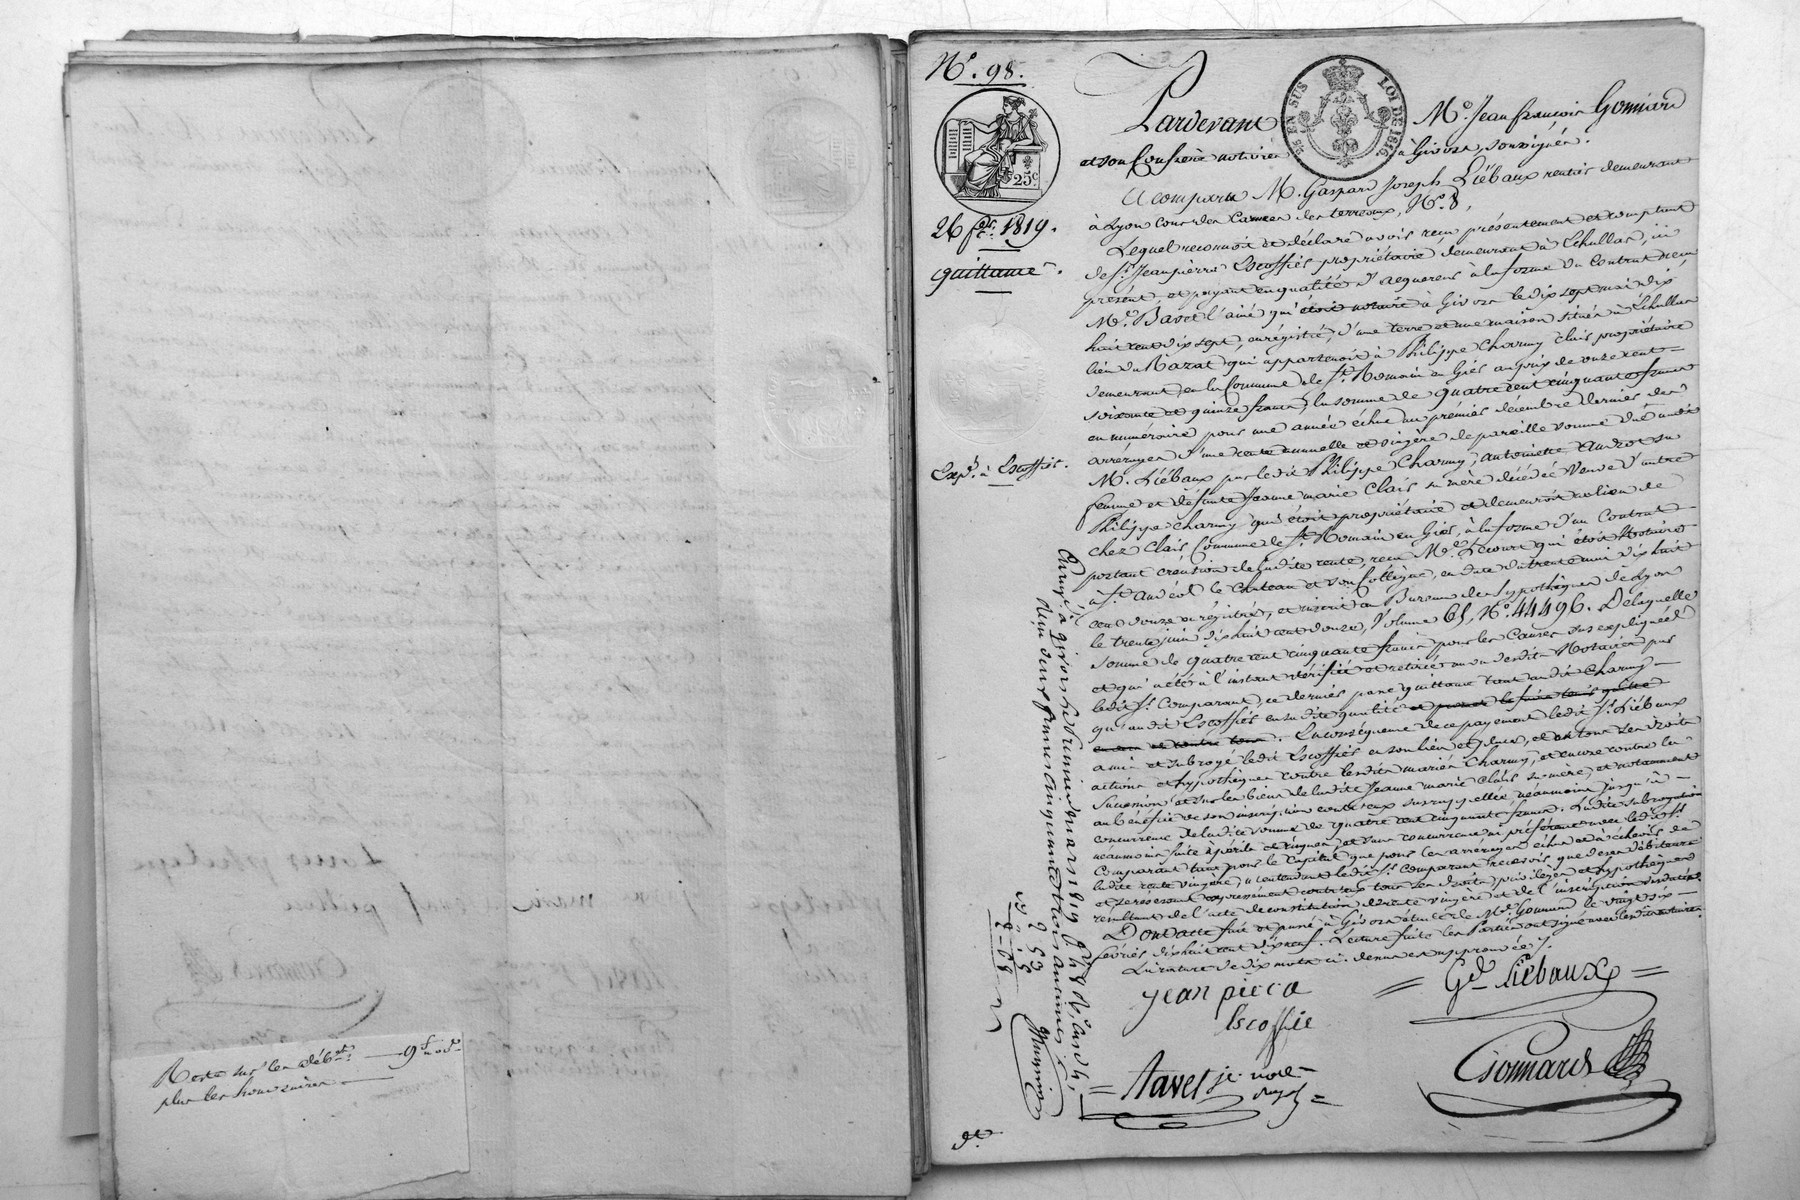 Reste sur les déb.és — 9f
plus les honoraires —
N.o 98.
25 EN SUS
LOI DE 1816.
25c
26 f.er 1819.
quittance
Exp.n à Escoffié.
Pardevant M.e Jean françois Gonnard
et son Confrère notaires à Givors, soussignés.
A comparu M. Gaspard Joseph Liébaux rentier demeurant
à Lyon Cour des Carmes des terreaux, N.o 8,
Lequel reconnoit et déclare avoir reçu présentement et comptant
de S.r Jean pierre Escoffiés propriétaire demeurant à Echallas, ici
présent, et payant en qualité d'acquereur à la forme du Contrat reçu
M.e Bavet l'ainé qui étoit notaire à Givors le dix sept mai dix
huit cent dix sept, enrégistré, d'une terre et une maison située à Echallas
lieu du Mazat qui appartenoit à Philippe Charmy Clais propriétaire
demeurant en la Commune de S.t Romain en Giés au prix de onze cent
soixante et quinze francs, la somme de quatre cent cinquante francs
en numéraire pour une année échue au premier décembre dernier des
arrérages d'une rente annuelle et viagère de pareille somme due audit
M. Liébaux par ledit Philippe Charmy, antoinette sa
femme et défunte Jeanne marie Clais sa mère décédée Veuve d'autre
Philippe Charmy qui étoit propriétaire et demeuroit au lieu de
chez Clais, Commune de S.t Romain en Giés, à la forme d'un Contrat
portant création de ladite rente, reçu M.e Lecourt qui étoit Notaire
à S.t andéol le Chateau et son Collègue, en date du trente mai dix huit
cent douze enrégistré, et inscrit au Bureau des hypothèques de Lyon
le trente juin dix huit cent douze, Volume 61, N.o 44496. De laquelle
somme de quatre cent cinquante francs pour les Causes sus expliquées
et qui a été à l'instant vérifiée et retirée au vu desdits Notaires par
ledit S.r Comparant, ce dernier passe quittance tant audit Charmy
qu'audit Escoffiés en sadite qualité et promet le faire tenir quitte
envers et contre tous. En conséquence de ce payement ledit S.r Liébaux
a mis et subrogé ledit Escoffiés en son lieu et place, et en tous ses droits
actions et hypothèques contre lesdits mariés Charmy, et encore contre la
succession et sur les biens de ladite Jeanne marie Clais sa mère, et notamment
au bénéfice de son inscription contr'eux susrappellée, néanmoins jusqu'à
concurrence de ladite somme de quatre cent cinquante francs. Ladite subrogation
néanmoins faite à périls et risques, et sans concurrence ni préférence avec ledit S.r
Comparant tant pour le Capital que pour les arrérages échus et à échoir de
ladite rente viagère, n'entendant ledit S.r comparant recevoir que de ses débiteurs
et réservant expressément contr'eux tous ses droits, privilèges et hypothèques
resultant de l'acte de constitution de rente viagère et de l'inscription susdatés.
Dont acte fait et passé à Givors étude de M.e Gonnard le vingt six
février dix huit cent dix neuf. Lecture faite les Parties ont signé avec lesdits notaires.
La rature de dix mots ci-dessus est approuvée.
jean piere
Escoffie
G.d Liébaux
Bavet j.e not.re
Gonnard
Enreg.é à givors le premier mars 1819
Reçu deux francs cinquante trois centimes
2 53